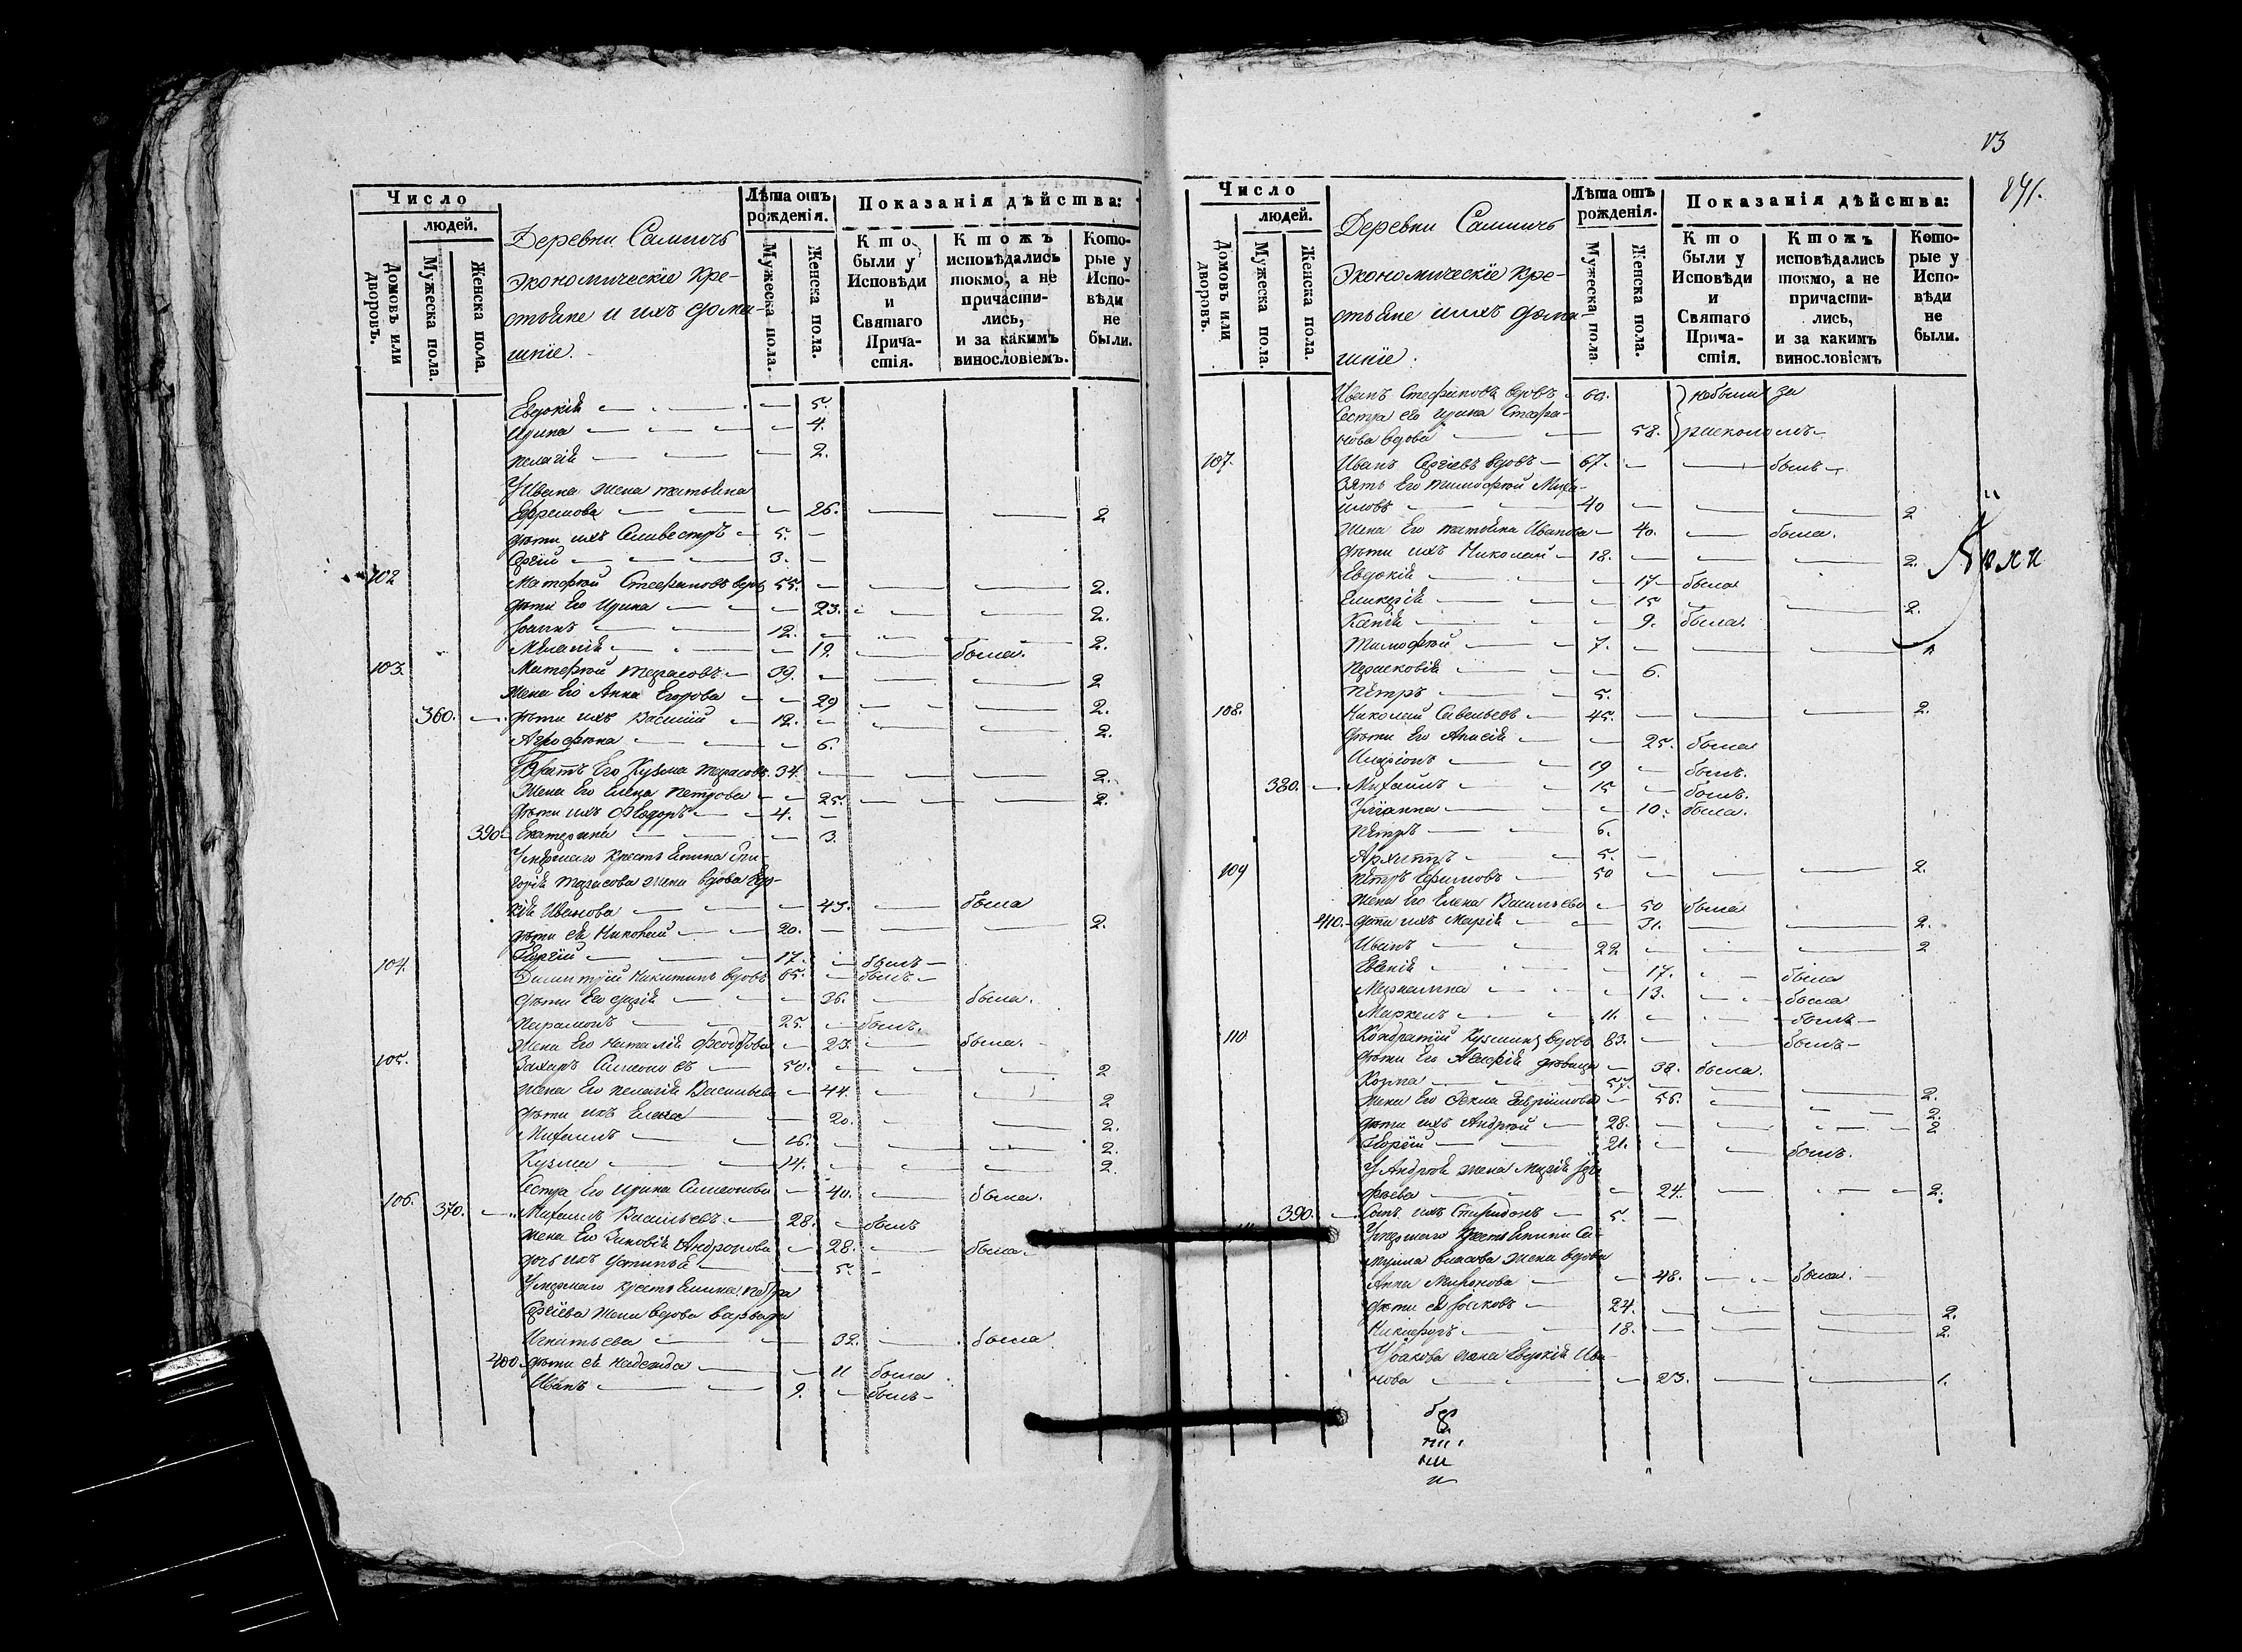 Число
людей.
Домовъ или дворовъ.
Мужеска пола.
Женска пола.
Деревни Саминъ
экономическіе кре-
стьяне и ихъ дома-
шніе.
Лѣта отъ рожденія.
Мужеска пола.
Женска пола.
Показанія дѣйства:
Кто были у Исповѣди и Святаго Причастія.
Ктожъ исповѣдались токмо, а не причасти-лись, и за какимъ винословіемъ.
Кото-рые у Испо-вѣди не были.
Евдокія 5.
Ирина 4.
Пелагія 2.
У Ивана жена Татьяна
Ефремова 26. 2
дѣти ихъ Силвестръ 5.
Сергій 3.
102 Матфей Стефановъ вдовъ 55. 2.
дѣти Его Ирина 23. 2.
Іоаннъ 12. 2.
Меланія 19. была.
103. Матфей Тарасовъ 39. 2
жена Его Анна Егорова 29 2.
360. дѣти ихъ Василій 12. 2.
Агрофена 6.
Братъ Его Кузма Тарасовъ 34. 2.
Жена Его Елена Петрова 25. 2.
дѣти ихъ Феодоръ 4.
390 Екатерина 3.
Умершаго крестьянина
Тарасова жена вдова Евдо-
кія Иванова 43. была
дѣти ея Николай 20. 2.
Георгій 17. былъ
104. Димитрій Никитинъ вдовъ 65. былъ
дѣти Его Дарія 36. была.
Парамонъ 25. былъ.
Жена Его Наталія Феодорова 23. была.
105. Захаръ Симеоновъ 50. 2
жена Его Пелагія Васильева 44. 2
дѣти ихъ Елена 20. 2.
Михаилъ 16. 2.
Кузма 14. 2.
Сестра Его Ирина Симеонова 40. была.
106. 370. Михаилъ Васильевъ 28. былъ
жена Его Зиновія Андронова 28. была.
дочь ихъ Устинья 5.
Умершаго крестьянина Петра
Сергіева жена вдова Варвара
Игнатьева 32. была
400 дѣти ея Надежда 11 была
Иванъ 9. былъ
13
241.
Число
людей.
Домовъ или дворовъ.
Мужеска пола.
Женска пола.
Деревни Саминъ
экономическіе кре-
стьяне и ихъ дома-
шніе.
Лѣта отъ рожденія.
Мужеска пола.
Женска пола.
Показанія дѣйства:
Кто были у Исповѣди и Святаго Прича-стія.
Ктожъ исповѣдались токмо, а не причасти-лись, и за какимъ винословіемъ
Кото-рые у Испо-вѣди не были.
Иванъ Стефановъ вдовъ 60. небыли за
Сестра его Ирина Стефа-
нова вдова 58. расколомъ
107. Иванъ Сергіевъ вдовъ 67. былъ
Зять Его Тимофей Миха-
йловъ 40 2
жена Его Татьяна Иванова 40. была.
дѣти ихъ Николай 18. 2.
Евдокія 17 была
Гликерія 15 2.
Ксенія 9. была.
Тимофей 7.
Парасковія 6.
Петръ 5.
108. Николай Савельевъ 45. 2.
дѣти Его Анисія 25. была
Иларіонъ 19 былъ.
380. Михаилъ 15 былъ.
Уліанна 10. была.
Петръ 6.
Архиппъ 5.
109 Петръ Ефимовъ 50 2.
жена Его Елена Васильева 50 была
410. дѣти ихъ Марія 31. 2.
Иванъ 22 2
Евгенія 17. была
13. была
Маркелъ 11. былъ
110 Кондратій Кузминъ вдовъ 83. былъ
дѣти Его дѣвица 38. была.
Козма 57. 2.
жена Его Фекла Гавріилова 56. 2.
дѣти ихъ Андрей 28. 2
Георгій 21. былъ.
У Андрея жена Марія
фѣева 24. 2.
390. Сынъ ихъ Спиридонъ 5.
Умершаго крестьянина Са-
муила Власова жена вдова
Анна Миронова 48. была.
дѣти ея Іоаковъ 24. 2.
Никифоръ 18. 2.
У Іоакова жена Евдокія Ива-
нова 23. 1.